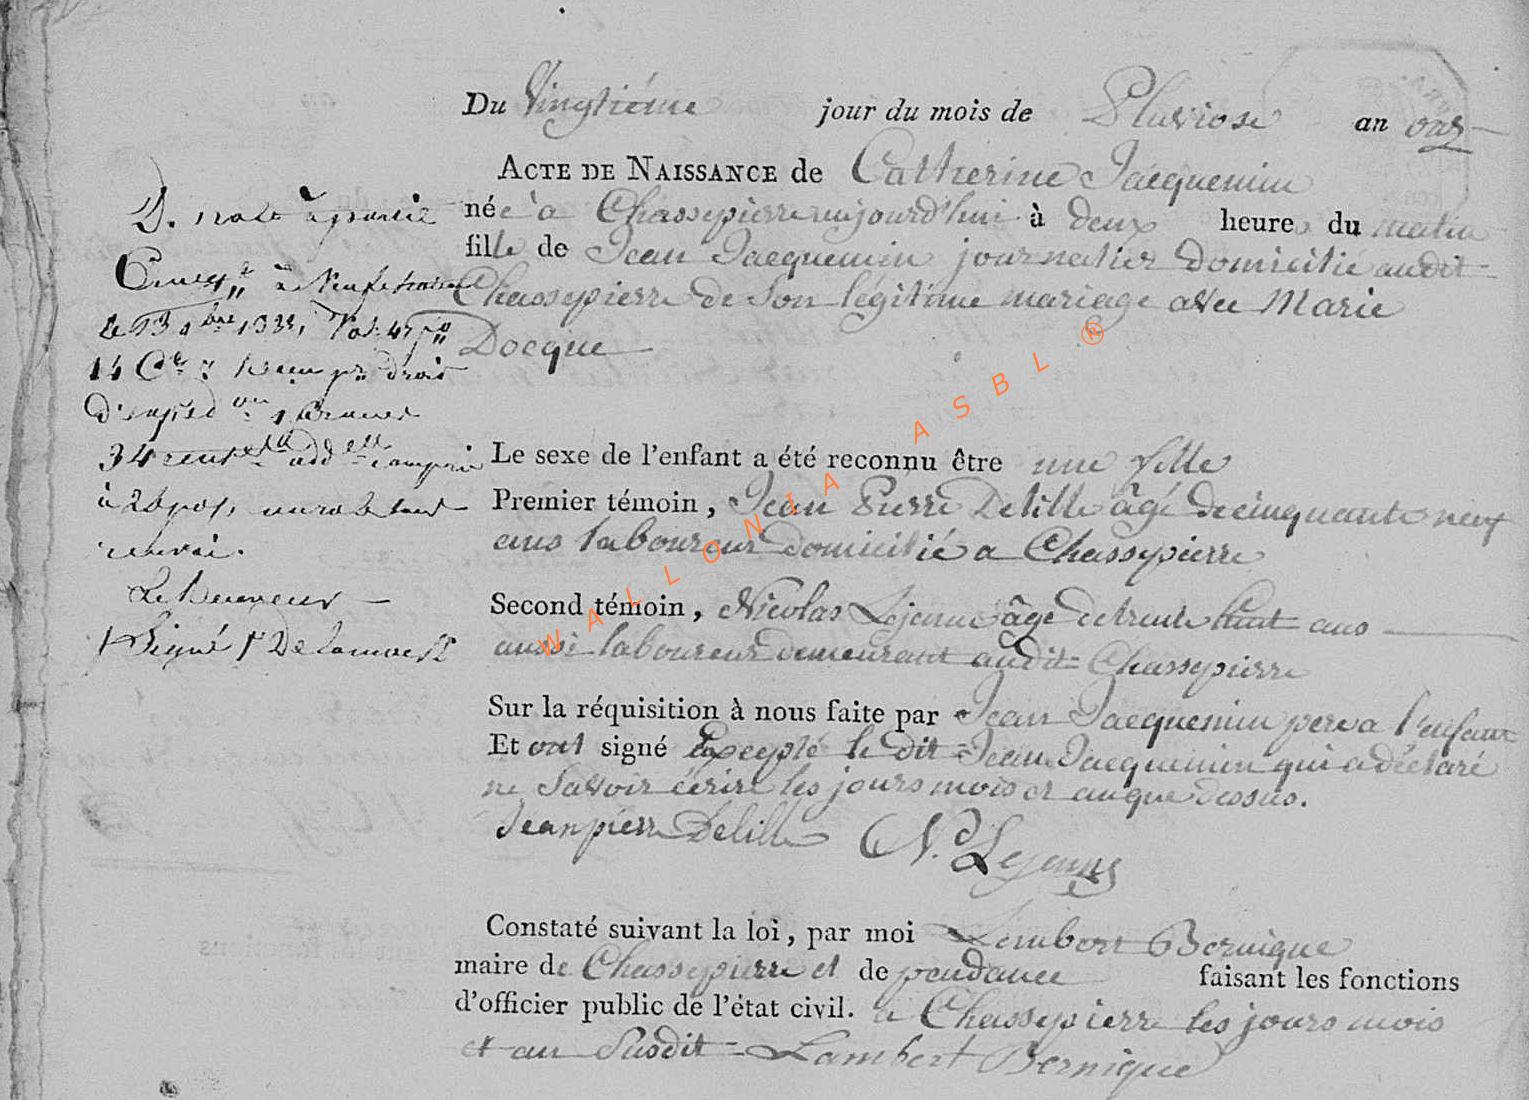 Du Vingtiéme jour du mois de Pluviose an onz
ACTE DE NAISSANCE de Catherine Jacquemin
née a Chassepierre aujourd'hui à deux heure du matin
fille de Jean Jacquemin journalier domicilié audit
Chassepierre de Son légitime mariage avec Marie
Docque
Le sexe de l'enfant a été reconnu être une fille
Premier témoin, Jean Pierre Delille âgé de cinquante neuf
ans laboureur domicilié a Chassepierre
Second témoin, Nicolas Lejeune âgé de trente huit ans
aussi laboureur demeurant audit Chassepierre
Sur la réquisition à nous faite par Jean Jacquemin pere a l'enfant
Et ont signé Excepté le dit Jean Jacquemin qui a déclaré
ne Savoir écrire les jours mois et an que dessus.
Jean pierre Delille N. Lejeune
Constaté suivant la loi, par moi Lambert Bernique
maire de Chassepierre et de pendance faisant les fonctions
d'officier public de l'état civil. a Chassepierre les jours mois
et an Susdit Lambert Bernique
à
14
d'enreg
34 cent add compris
à
renvoi.
Le Receveur
Signé
WALLONIA ASBL ®